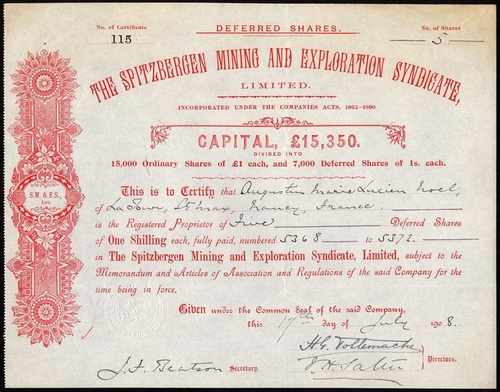 DEFERRED SHARES.
No. of Certificate
115
No. of Shares
5
THE SPITZBERGEN MINING AND EXPLORATION SYNDICATE,
LIMITED.
INCORPORATED UNDER THE COMPANIES ACTS, 1862-1900.
CAPITAL, £15,350.
DIVIDED INTO
15,000 Ordinary Shares of £1 each, and 7,000 Deferred Shares of 1s. each.
S.M. & E.S., LTD.
This is to Certify that Augustin Marie Lucien Noel,
of La Tour, St Max, Nancy, France.
is the Registered Proprietor of Five Deferred Shares
of One Shilling each, fully paid, numbered 5368 to 5372.
in The Spitzbergen Mining and Exploration Syndicate, Limited, subject to the
Memorandum and Articles of Association and Regulations of the said Company for the
time being in force.
Given under the Common Seal of the said Company,
this 17th day of July 1908.
H.G. Tollemache
Directors.
J.F. Beatson Secretary.